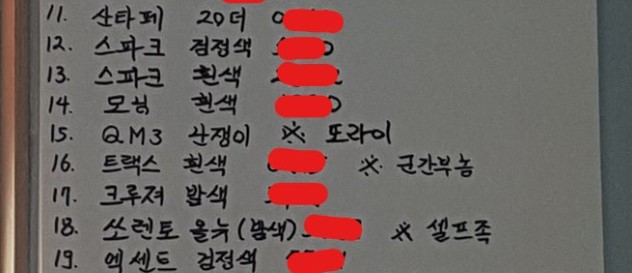 11. 산타페 20더
12. 스파크 검정색
13. 스파크 흰색
14. 모닝 흰색
15. QM3 산쟁이 ※ 또라이
16. 트랙스 흰색 ※ 군간부놈
17. 크루져 밤색
18. 쏘렌토 올뉴(밤색) ※ 셀프족
19. 엑센트 검정색